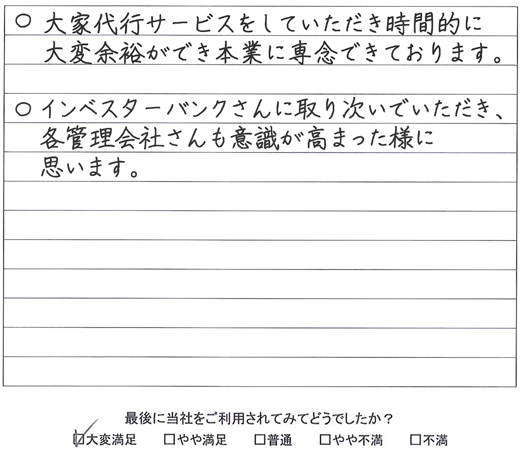 ○ 大家代行サービスをしていただき時間的に
大変余裕ができ本業に専念できております。
○ インベスターバンクさんに取り次いでいただき、
各管理会社さんも意識が高まった様に
思います。
最後に当社をご利用されてみてどうでしたか？
☑大変満足 □やや満足 □普通 □やや不満 □不満